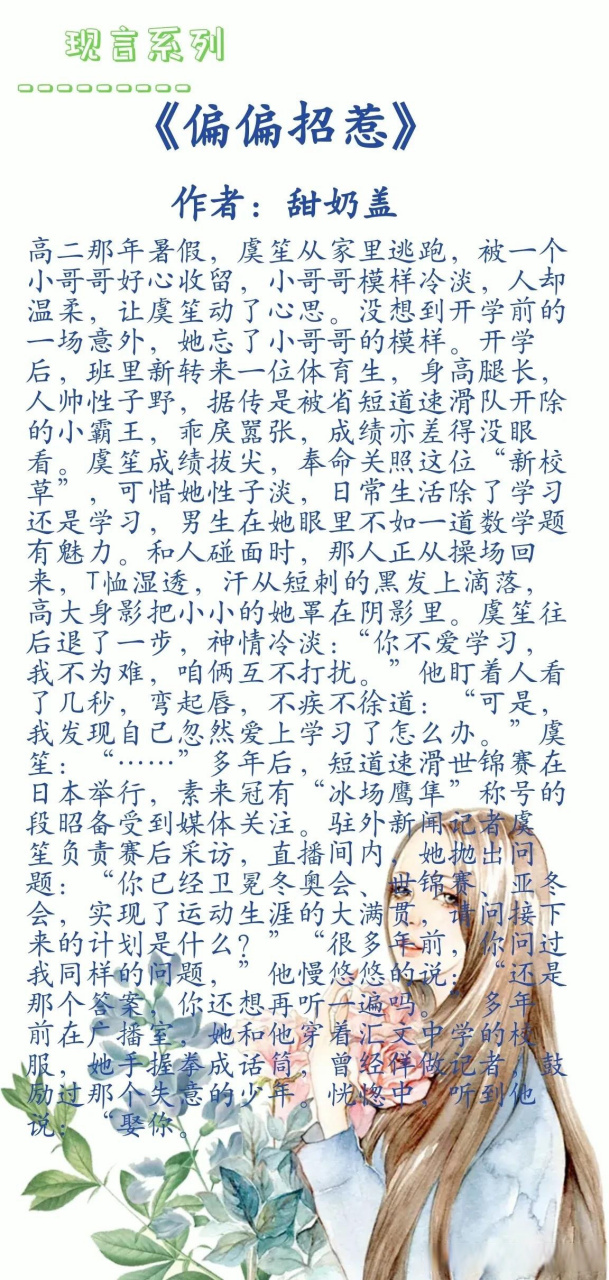 现言系列
《偏偏招惹》
作者：甜奶盖
高二那年暑假，虞笙从家里逃跑，被一个
小哥哥好心收留，小哥哥模样冷淡，人却
温柔，让虞笙动了心思。没想到开学前的
一场意外，她忘了小哥哥的模样。开学
后，班里新转来一位体育生，身高腿长，
人帅性子野，据传是被省短道速滑队开除
的小霸王，乖戾嚣张，成绩亦差得没眼
看。虞笙成绩拔尖，奉命关照这位“新校
草”，可惜她性子淡，日常生活除了学习
还是学习，男生在她眼里不如一道数学题
有魅力。和人碰面时，那人正从操场回
来，T恤湿透，汗从短刺的黑发上滴落，
高大身影把小小的她罩在阴影里。虞笙往
后退了一步，神情冷淡：“你不爱学习，
我不为难，咱俩互不打扰。”他盯着人看
了几秒，弯起唇，不疾不徐道：“可是，
我发现自己忽然爱上学习了怎么办。”虞
笙：“……”多年后，短道速滑世锦赛在
日本举行，素来冠有“冰场鹰隼”称号的
段昭备受到媒体关注。驻外新闻记者虞
笙负责赛后采访，直播间内，她抛出问
题：“你已经卫冕冬奥会、世锦赛、亚冬
会，实现了运动生涯的大满贯，请问接下
来的计划是什么？”“很多年前，你问过
我同样的问题，”他慢悠悠的说：“还是
那个答案，你还想再听一遍吗。”多年
前在广播室，她和他穿着汇文中学的校
服，她手握拳成话筒，曾经佯做记者，鼓
励过那个失意的少年。恍惚中，听到他
说：“娶你。